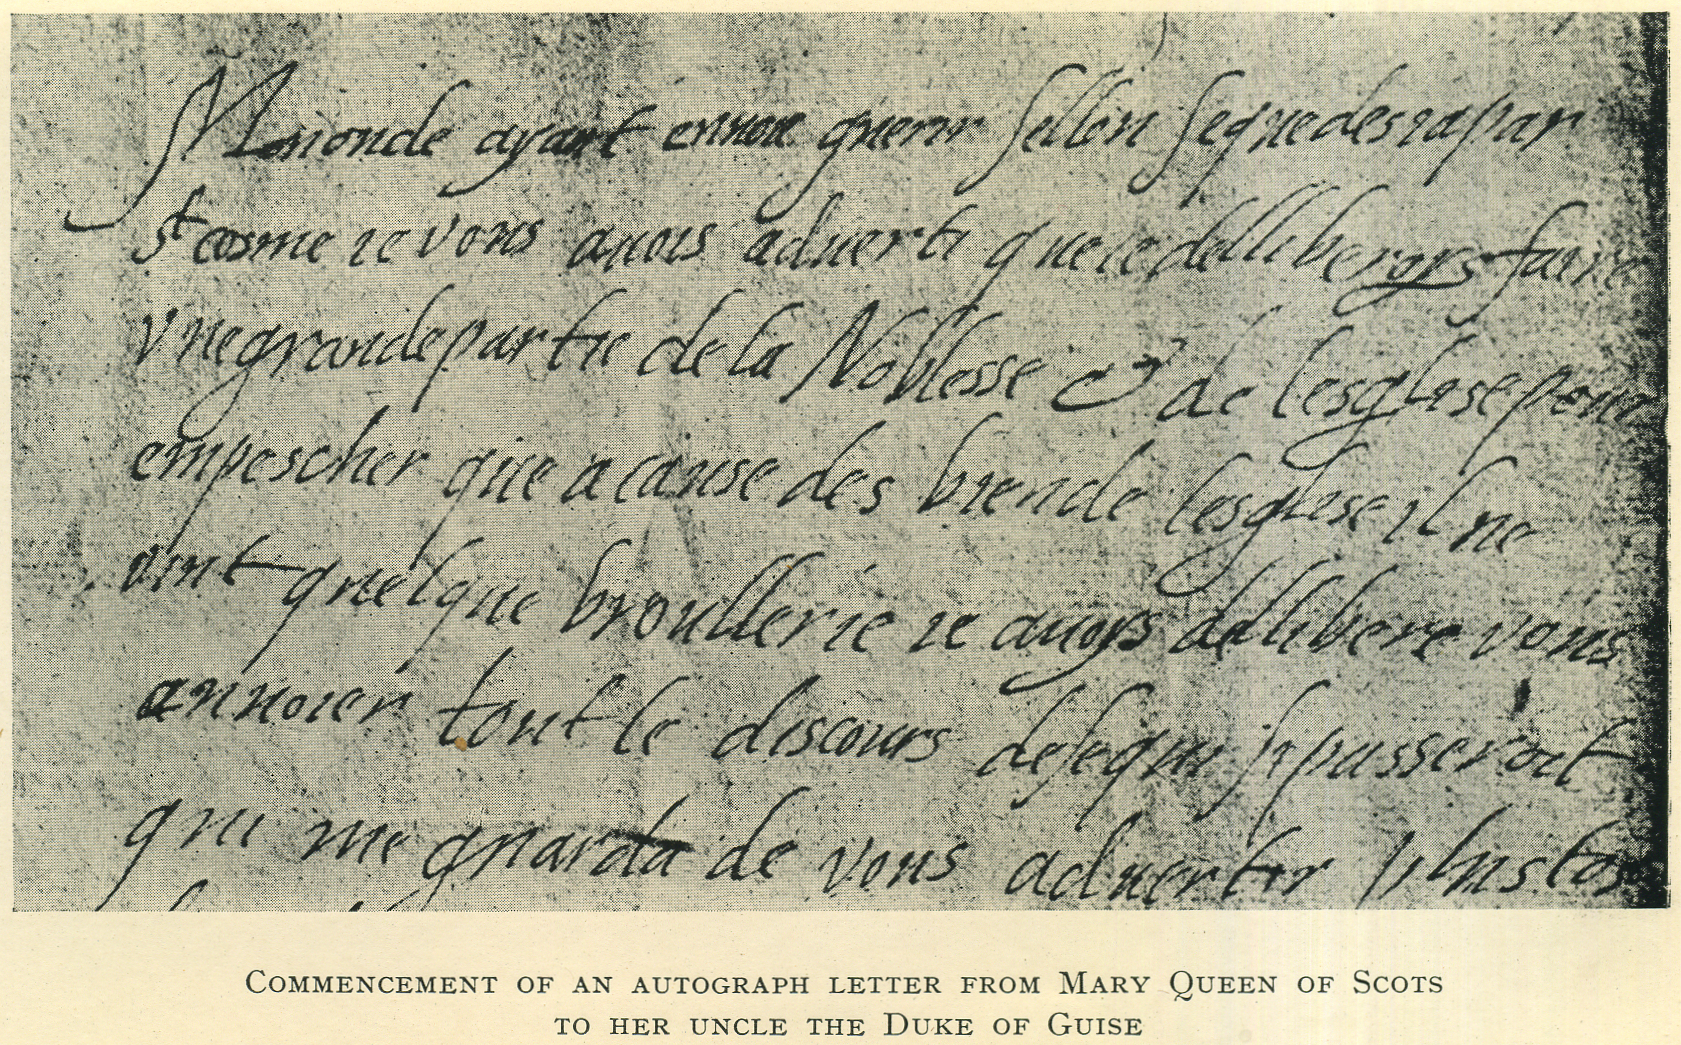 Mononcle ayant ennoié querir sellon se que desia par
St cosme ie vous auois aduerti que ie delliberoys faire
vne grande partie de la Noblesse & de lesglise pour
empescher que a cause des biens de lesglise il ne
vint quelque broullerie ie auoys dellibere vous
annoier tout le discours de se qui se passeroit
qui me guarda de vous aduertir plustos
Commencement of an autograph letter from Mary Queen of Scots
to her uncle the Duke of Guise